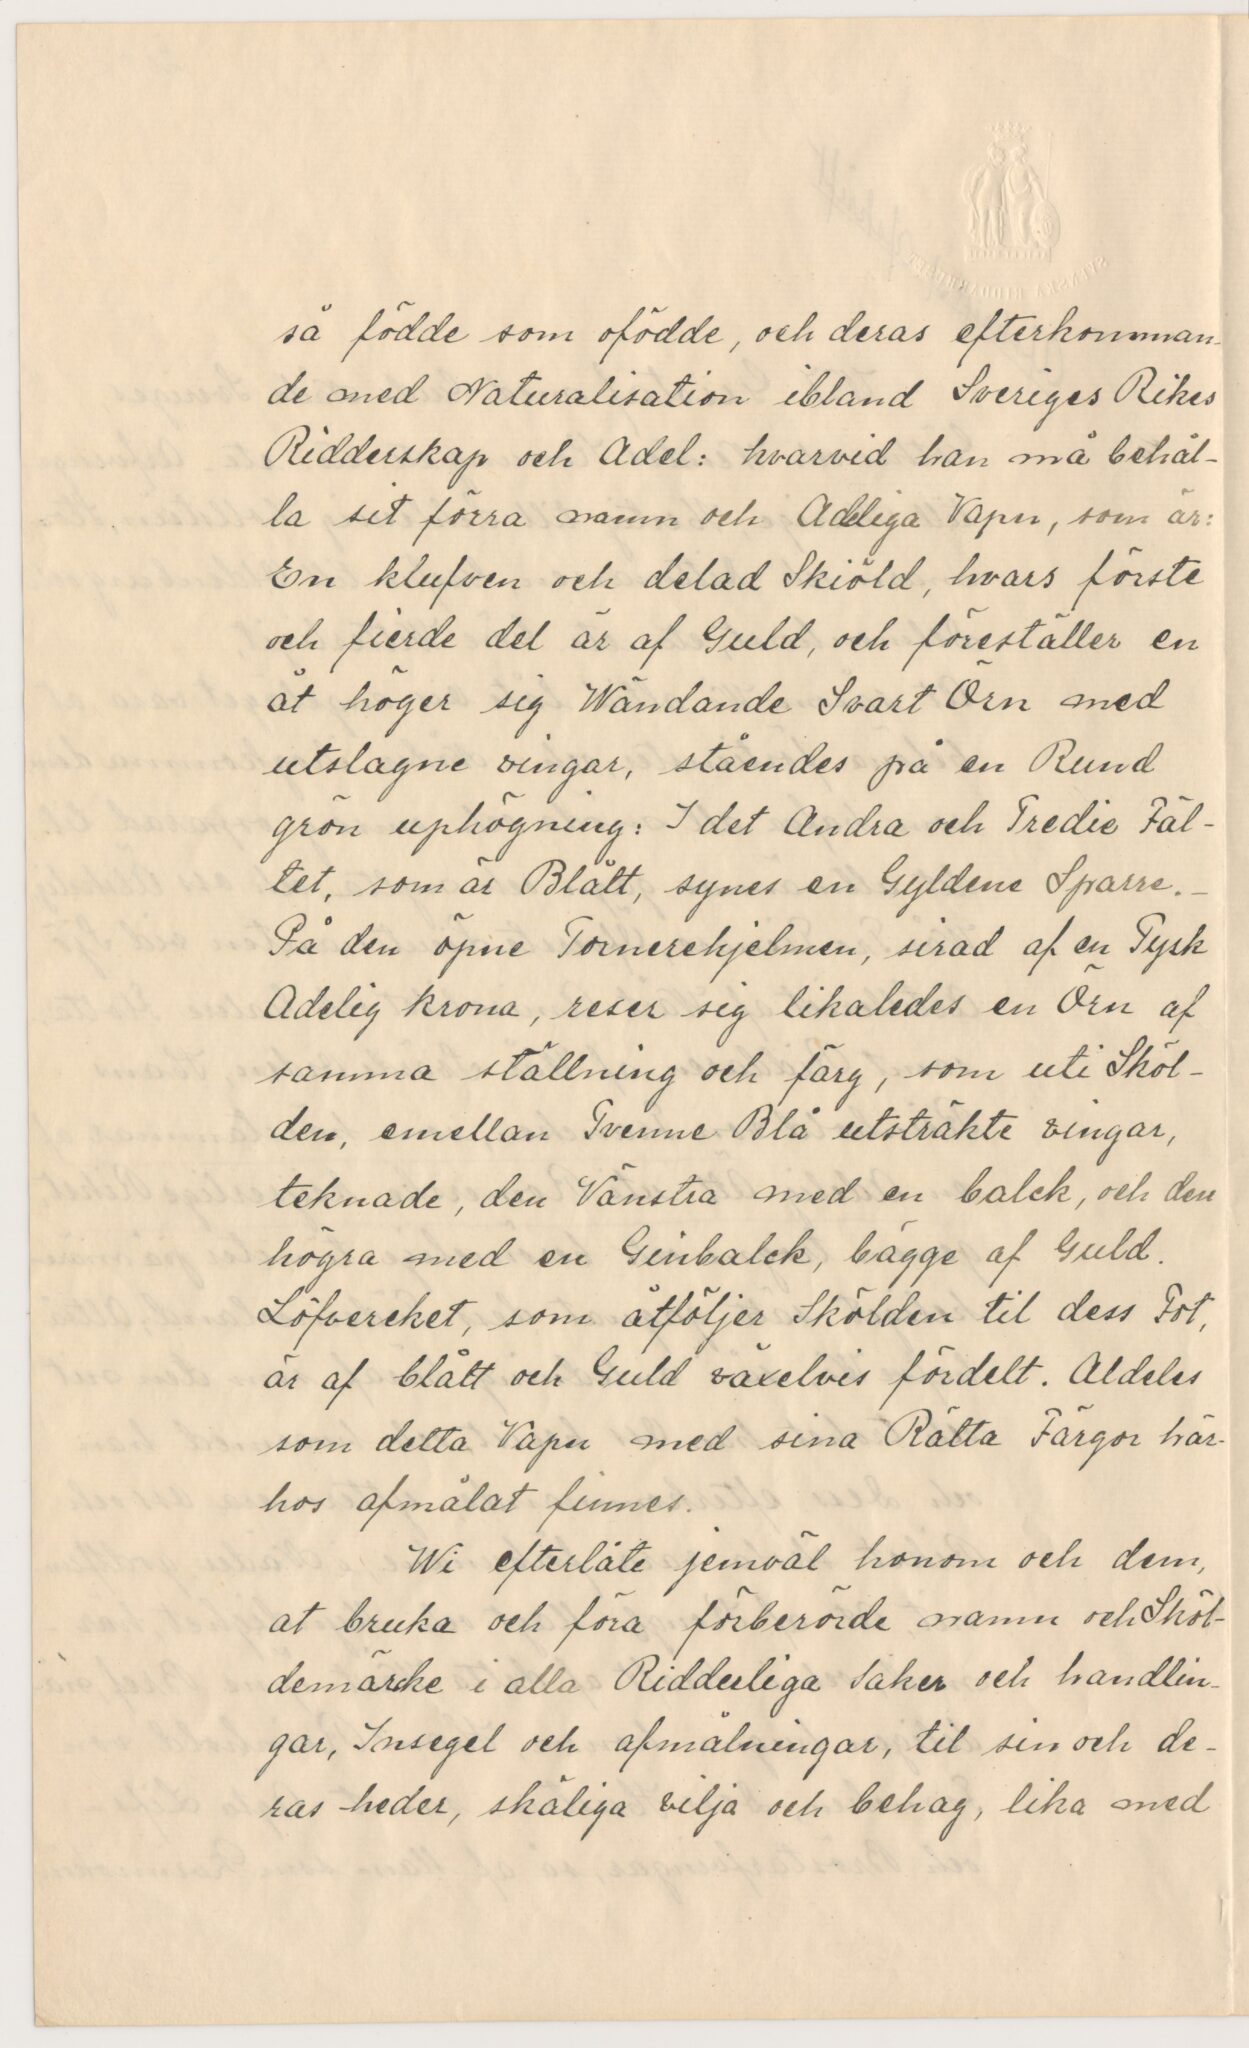 så födde som ofödde, och deras efterkomman-
de med Naturalisation ibland Sveriges Rikes
Ridderskap och Adel: hvarvid han må behål-
la sit förra namn och Adeliga Vapn, som är:
En klufven och delad Skiöld, hvars förste
och fierde del är af Guld, och föreställer en
åt höger sig Wändande Svart Örn med
utslagne vingar, ståendes på en Rund
grön uphögning: I det Andra och Tredie Fäl-
tet, som är Blått, synes en Gyldene Sparre. —
På den öpne Tornerehjelmen, sirad af en Tysk
Adelig krona, reser sig likaledes en Örn af
samma ställning och färg, som uti Sköl-
den, emellan Tvenne Blå utsträkte vingar,
teknade, den Vänstra med en balck, och den
högra med en Ginbalck, bägge af Guld.
Löfvercket, som åtföljer Skölden til dess Fot,
är af blått och Guld växelvis fördelt. Aldeles
som detta Vapn med sina Rätta Färgor här-
hos afmålat finnes.
Wi efterlåte jemväl honom och dem,
at bruka och föra förberörde namn och Sköl-
demärcke i alla Ridderliga Saker och handlin-
gar, Insegel och afmålningar, til sin och de-
ras heder, skäliga vilja och behag, lika med